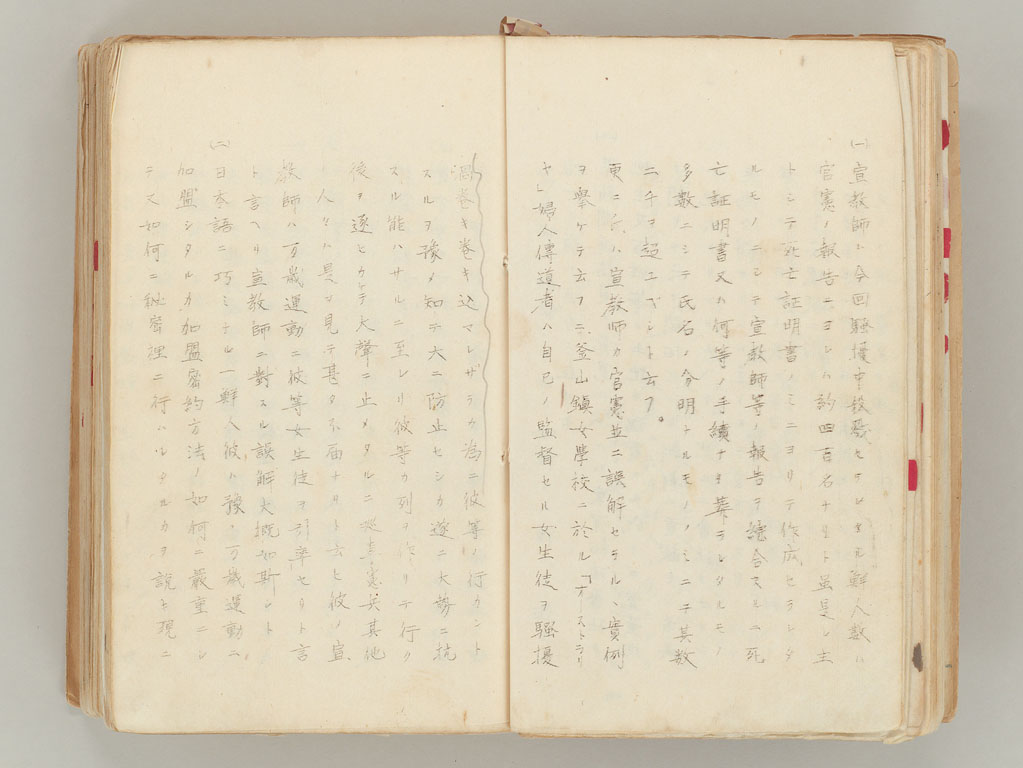 ㈠宣教師ト今回騒擾中殺戮セラレタル鮮人数ハ
官憲ノ報告ニヨレハ約四百名ナリト雖是レ主
トシテ死亡証明書ノミニヨリテ作成セラレタ
ルモノニシテ宣教師等ノ報告ヲ綜合スルニ死
亡証明書又ハ何等ノ手続ナク葬ラレタルモノ
多数ニシテ氏名ノ分明トルモノノミニテ其数
二千ヲ超ユベシト云フ。
更ニ ハ宣教師カ官憲並ニ誤解セラル、実例
ヲ挙ケテ云フニ、釜山鎮女學校ニ於ル「オーストラリ
ヤ」婦人傳道者ハ自己ノ監督セル女生徒ヲ騒擾
渦巻キ巻キ込マレザラム為ニ彼等ノ行カント
スルヲ豫メ知テ大ニ防止セシカ遂ニ大勢ニ抗
スル能ハサルニ至レリ彼等カ列ヲ作リテ行ク
後ヲ逐ヒカケテ大聲ニ止メタルニ 憲兵其他
ノ人々ハ是ヲ見テ甚タ不届ナリト云ヒ彼ノ宣
教師ハ万歳運動ニ彼等女生徒ヲ引率セリト言
ト言ヘリ宣教師ニ對スル誤解大概如斯シト
㈡日本語ニ巧ミナル一鮮人彼ハ豫 万歳運動ニ
加盟シタルカ加盟密約方法ノ如何ニ厳重ニシ
テ又如何ニ秘密裡ニ行ハレタルカヲ説キ現ニ